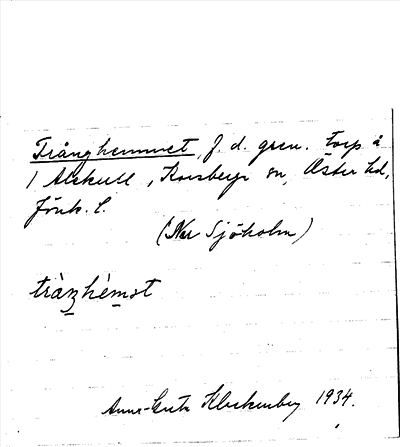 Trånghemmet, f. d. gren. torp å
1 Alekull, Korsberga sn, Öster hd,
Jönk. l.
(Nu Sjöholm)
tràŋhèmət
Anna-Greta Kluckenberg 1934.